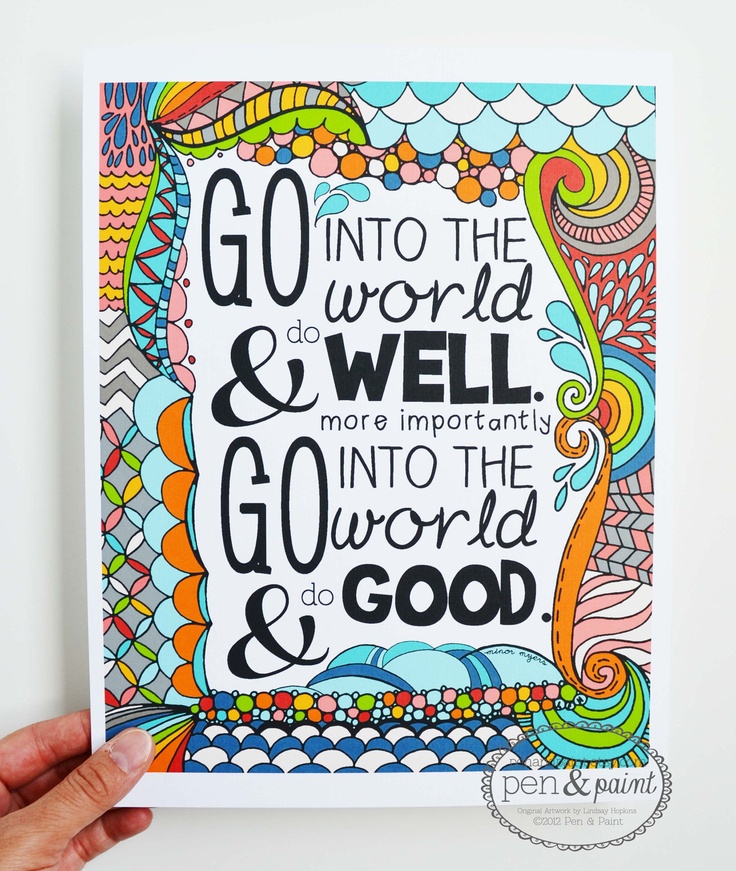 GO INTO THE
world
& do WELL.
more importantly
GO INTO THE
world
& do GOOD.
minor myers
pen & paint
Original Artwork by Lindsay Hopkins
©2012 Pen & Paint